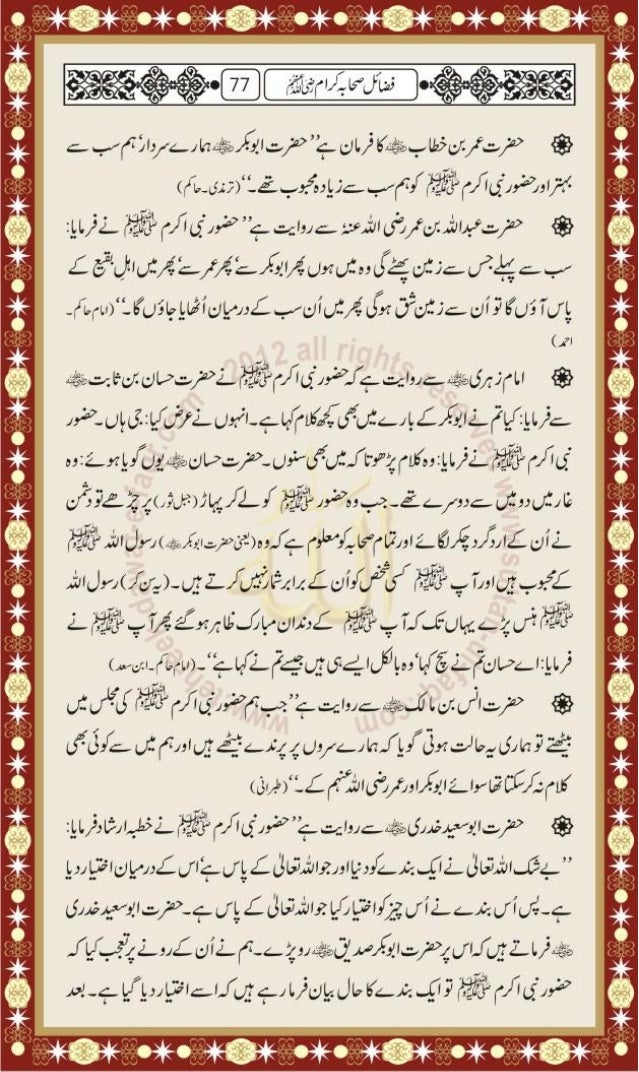 فضائل صحابہ کرام رضی اللہ عنہم
77
حضرت عمر بن خطاب رضی اللہ عنہ کا فرمان ہے ’’حضرت ابوبکر رضی اللہ عنہ ہمارے سردار‘ ہم سب سے
بہتر اور حضور نبی اکرم ﷺ کو ہم سب سے زیادہ محبوب تھے۔‘‘ (ترمذی۔حاکم)
حضرت عبداللہ بن عمر رضی اللہ عنہٗ سے روایت ہے ’’حضور نبی اکرم ﷺ نے فرمایا:
سب سے پہلے جس سے زمین پھٹے گی وہ میں ہوں پھر ابوبکر سے‘ پھر عمر سے‘ پھر میں اہلِ بقیع کے
پاس آؤں گا تو اُن سے زمین شق ہوگی پھر میں اُن سب کے درمیان اُٹھایا جاؤں گا۔‘‘ (امام حاکم۔
احمد)
امام زہری رضی اللہ عنہ سے روایت ہے کہ حضور نبی اکرم ﷺ نے حضرت حسان بن ثابت رضی اللہ عنہ
سے فرمایا: کیا تم نے ابوبکر کے بارے میں بھی کچھ کلام کہا ہے۔ انہوں نے عرض کیا: جی ہاں۔ حضور
نبی اکرم ﷺ نے فرمایا: وہ کلام پڑھو تا کہ میں بھی سنوں۔ حضرت حسان رضی اللہ عنہ یوں گویا ہوئے: وہ
غار میں دو میں سے دوسرے تھے۔ جب وہ حضور ﷺ کو لے کر پہاڑ (جبل ثور) پر چڑھے تو دشمن
نے اُن کے ارد گرد چکر لگائے اور تمام صحابہ کو معلوم ہے کہ وہ (یعنی حضرت ابوبکر رضی اللہ عنہ) رسول اللہ ﷺ
کے محبوب ہیں اور آپ ﷺ کسی شخص کو اُن کے برابر شمار نہیں کرتے ہیں۔ (یہ سن کر) رسول اللہ
ﷺ ہنس پڑے یہاں تک کہ آپ ﷺ کے دندان مبارک ظاہر ہوگئے پھر آپ ﷺ نے
فرمایا: اے حسان تم نے سچ کہا‘ وہ بالکل ایسے ہی ہیں جیسے تم نے کہا ہے‘‘۔ (امام حاکم۔ابن سعد)
حضرت انس بن مالک رضی اللہ عنہ سے روایت ہے ’’جب ہم حضور نبی اکرم ﷺ کی مجلس میں
بیٹھتے تو ہماری یہ حالت ہوتی گویا کہ ہمارے سروں پر پرندے بیٹھے ہیں اور ہم میں سے کوئی بھی
کلام نہ کر سکتا تھا سوائے ابوبکر اور عمر رضی اللہ عنہم کے۔‘‘ (طبرانی)
حضرت ابو سعید خدری رضی اللہ عنہ سے روایت ہے ’’حضور نبی اکرم ﷺ نے خطبہ ارشاد فرمایا:
’’بے شک اللہ تعالیٰ نے ایک بندے کو دنیا اور جو اللہ تعالیٰ کے پاس ہے‘ اس کے درمیان اختیار دیا
ہے۔ پس اُس بندے نے اُس چیز کو اختیار کیا جو اللہ تعالیٰ کے پاس ہے۔ حضرت ابو سعید خدری
رضی اللہ عنہ فرماتے ہیں کہ اس پر حضرت ابوبکر صدیق رضی اللہ عنہ رو پڑے۔ ہم نے اُن کے رونے پر تعجب کیا کہ
حضور نبی اکرم ﷺ تو ایک بندے کا حال بیان فرما رہے ہیں کہ اسے اختیار دیا گیا ہے۔ بعد
اللہ
2012 all rights reserved